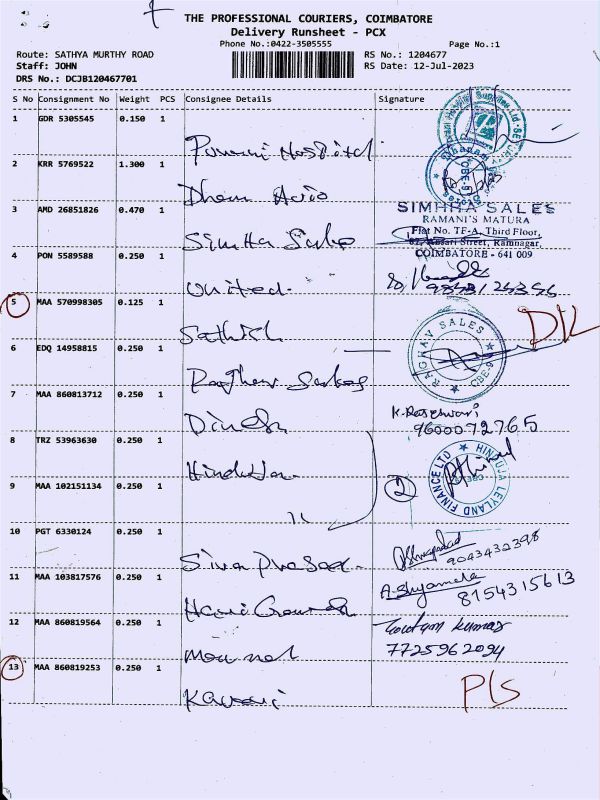 THE PROFESSIONAL COURIERS, COIMBATORE
Delivery Runsheet - PCX
Phone No.:0422-3505555
Page No.:1
Route: SATHYA MURTHY ROAD
RS No.: 1204677
Staff: JOHN
RS Date: 12-Jul-2023
DRS No.: DCJB120467701
S No Consignment No Weight PCS Consignee Details Signature
1 GDR 5305545 0.150 1
Hospital
2 KRR 5769522 1.300 1
3 AMD 26851826 0.470 1
Simhha Sales
SIMHHA SALES
RAMANI'S MATURA
Flat No. TF-A, Third Floor,
Ansari Street, Ramnagar,
COIMBATORE - 641 009
4 PON 5589588 0.250 1
United
5 MAA 570998305 0.125 1
Sathish
RAGHAV SALES
CBE-9
6 EDQ 14958815 0.250 1
Raghav Sales
7 MAA 860813712 0.250 1
9600072765
8 TRZ 53963630 0.250 1
Hinduja
2
HINDUJA LEYLAND FINANCE LTD
9 MAA 102151134 0.250 1
10 PGT 6330124 0.250 1
Siva Prasad
9043432398
11 MAA 103817576 0.250 1
A. Shyamala
8154315613
12 MAA 860819564 0.250 1
Goutam Kumar
7725962094
13 MAA 860819253 0.250 1
Kaveri